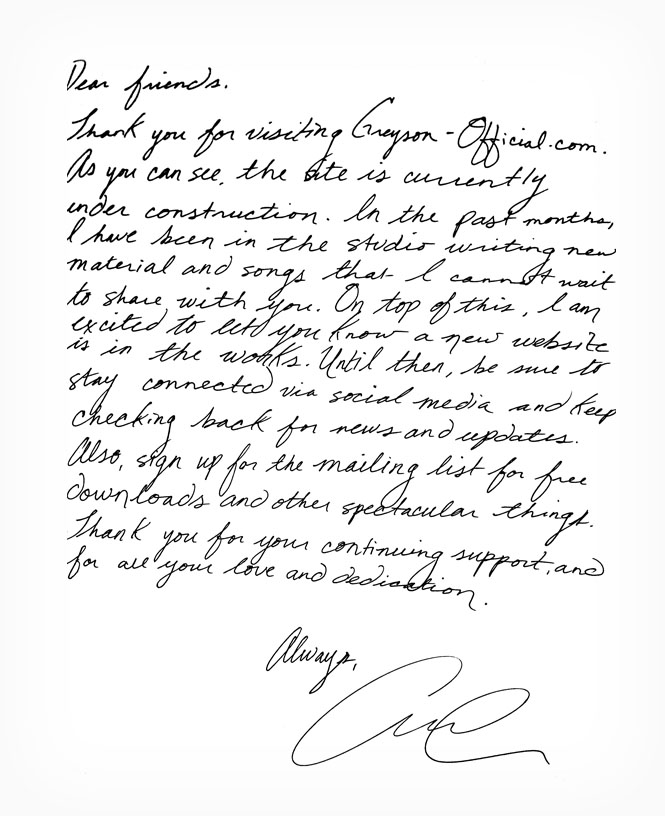 Dear friends.
Thank you for visiting Greyson-Official.com.
As you can see, the site is currently
under construction. In the past months,
I have been in the studio writing new
material and songs that I cannot wait
to share with you. On top of this, I am
excited to let you know a new website
is in the works. Until then, be sure to
stay connected via social media and keep
checking back for news and updates.
Also, sign up for the mailing list for free
downloads and other spectacular things.
Thank you for your continuing support, and
for all your love and dedication.
Always,